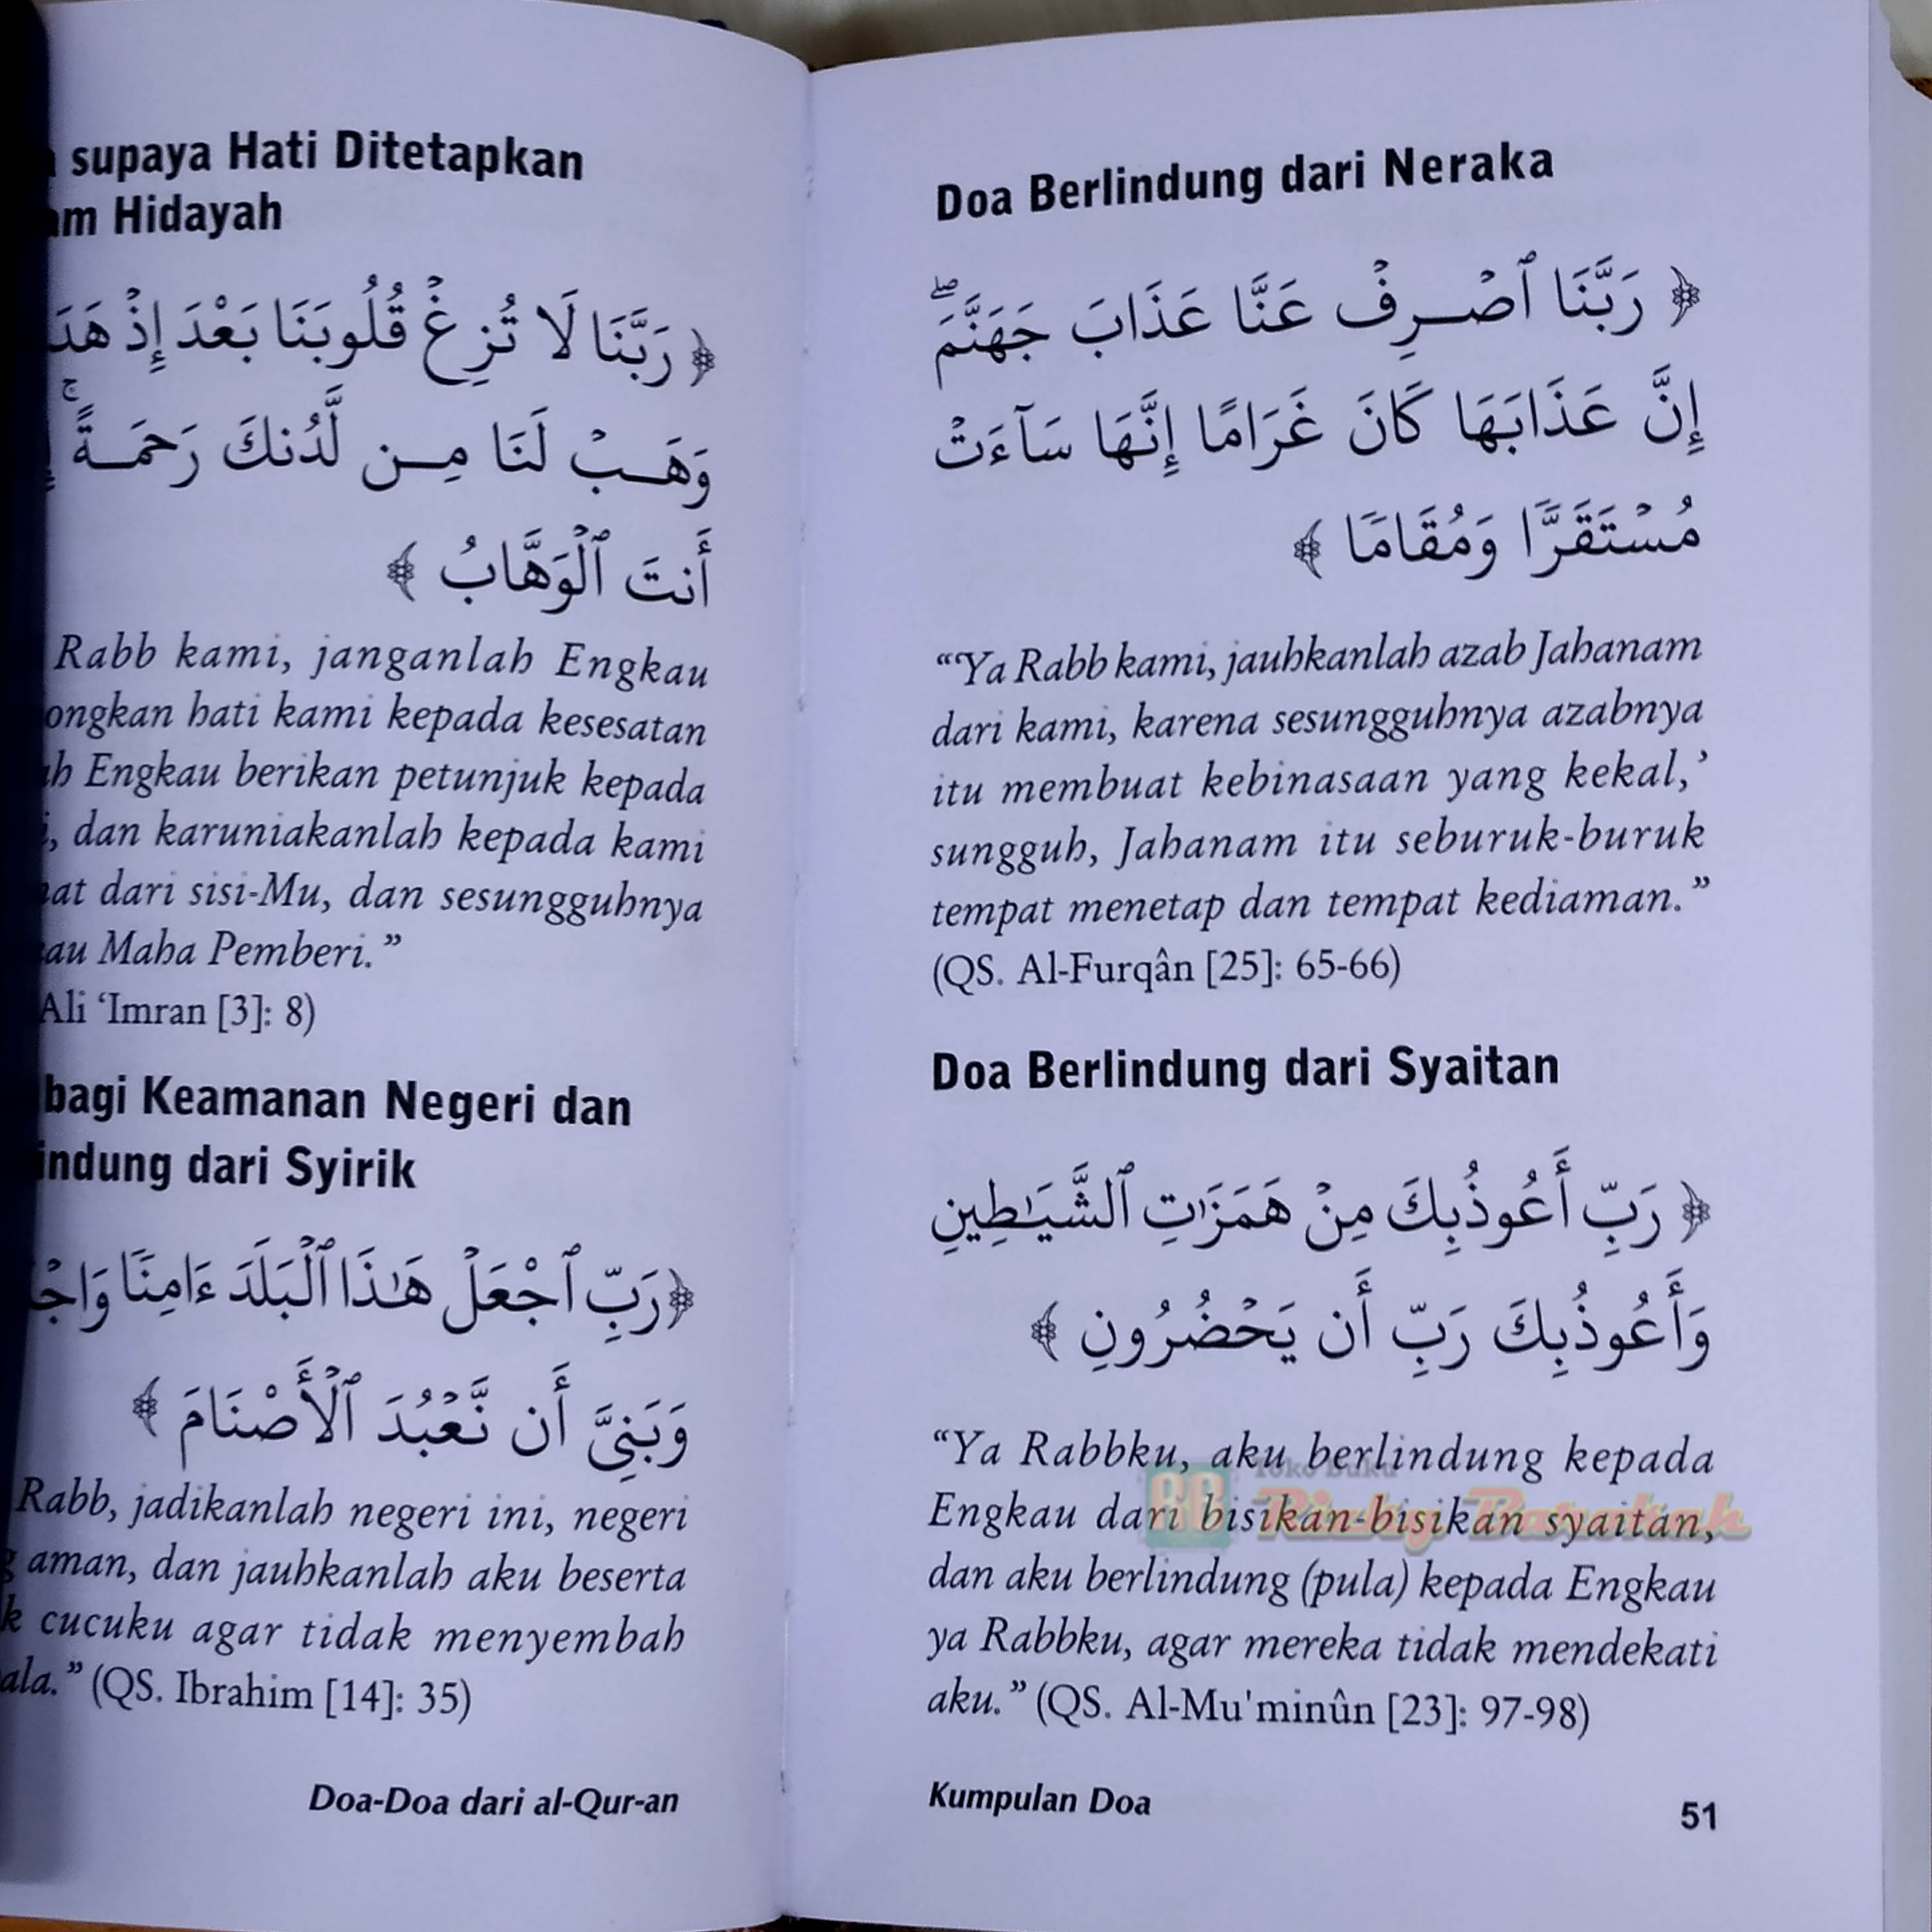 supaya Hati Ditetapkan
Hidayah
﴿ رَبَّنَا لَا تُزِغْ قُلُوبَنَا بَعْدَ إِذْ
وَهَـبْ لَنَا مِـن لَّدُنكَ رَحْمَـةً ۚ
أَنتَ ٱلْوَهَّابُ ﴾
Rabb kami, janganlah Engkau
hati kami kepada kesesatan
Engkau berikan petunjuk kepada
, dan karuniakanlah kepada kami
dari sisi-Mu, dan sesungguhnya
Maha Pemberi.”
Ali ‘Imran [3]: 8)
bagi Keamanan Negeri dan
dari Syirik
﴿ رَبِّ ٱجْعَلْ هَـٰذَا ٱلْبَلَدَ ءَامِنًا
وَبَنِىَّ أَن نَّعْبُدَ ٱلْأَصْنَامَ ﴾
Rabb, jadikanlah negeri ini, negeri
aman, dan jauhkanlah aku beserta
cucuku agar tidak menyembah
(QS. Ibrahim [14]: 35)
Doa-Doa dari al-Qur-an
Doa Berlindung dari Neraka
﴿ رَبَّنَا ٱصْـرِفْ عَنَّا عَذَابَ جَهَنَّمَ ۖ
إِنَّ عَذَابَهَا كَانَ غَرَامًا إِنَّهَا سَآءَتْ
مُسْتَقَرًّا وَمُقَامًا ﴾
“‘Ya Rabb kami, jauhkanlah azab Jahanam
dari kami, karena sesungguhnya azabnya
itu membuat kebinasaan yang kekal,’
sungguh, Jahanam itu seburuk-buruk
tempat menetap dan tempat kediaman.”
(QS. Al-Furqân [25]: 65-66)
Doa Berlindung dari Syaitan
﴿ رَبِّ أَعُوذُ بِكَ مِنْ هَمَزَٰتِ ٱلشَّيَـٰطِينِ
وَأَعُوذُ بِكَ رَبِّ أَن يَحْضُرُونِ ﴾
“Ya Rabbku, aku berlindung kepada
Engkau dari bisikan-bisikan syaitan,
dan aku berlindung (pula) kepada Engkau
ya Rabbku, agar mereka tidak mendekati
aku.” (QS. Al-Mu'minûn [23]: 97-98)
Kumpulan Doa
51
Toko Buku